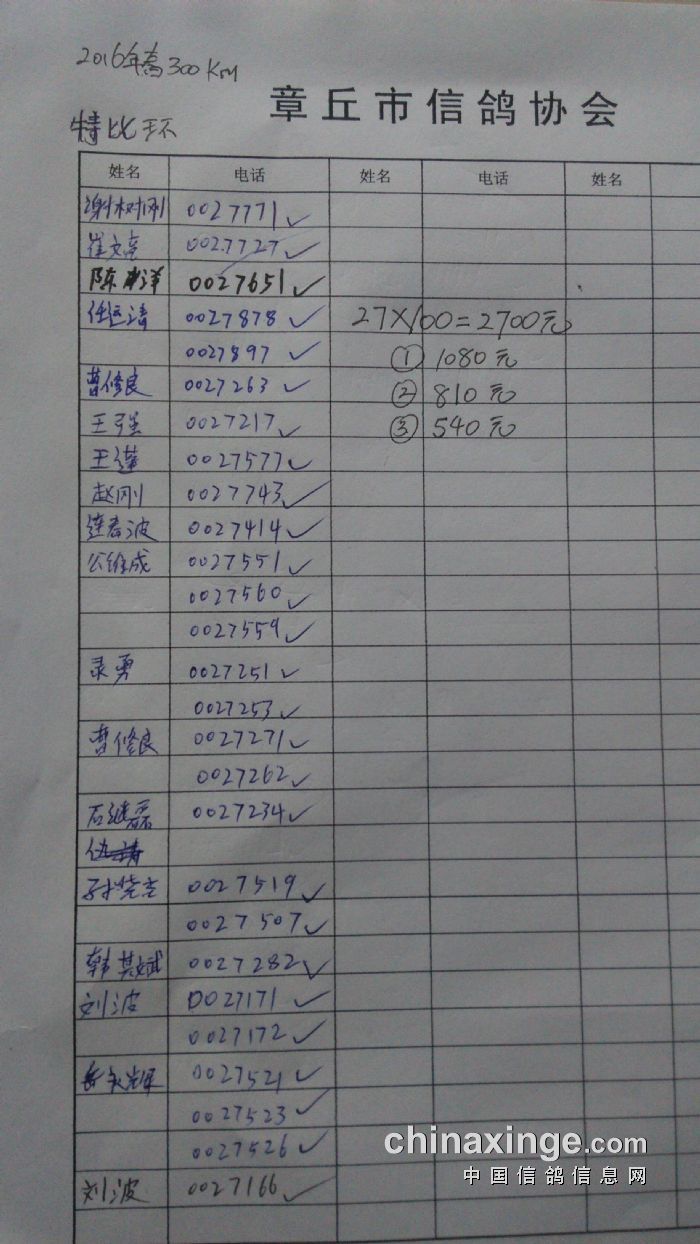 2016年高300Km
章丘市信鸽协会
特比环
姓名 电话 姓名 电话 姓名
谢树刚 0027771✓
崔文亮 0027727✓
陈 洋 0027651✓
任 清 0027878✓ 27×100=2700元
0027897✓ ① 1080元
曹修良 0027263✓ ② 810元
王强 0027217✓ ③ 540元
王莲 0027577✓
赵刚 0027743✓
逯春波 0027414✓
公维成 0027551✓
0027560✓
0027559✓
勇 0027251✓
0027253✓
曹修良 0027271✓
0027262✓
石继磊 0027234✓
孙 0027519✓
0027507✓
韩其斌 0027282✓
刘波 0027171✓
0027172✓
0027521✓
0027523✓
0027526✓
刘波 0027166✓
chinaxinge.com
中国信鸽信息网